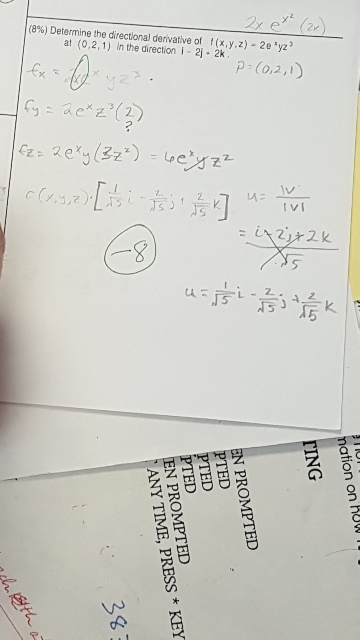 2x e^x² (2x)
(8%) Determine the directional derivative of f(x,y,z) = 2e^x yz³
at (0,2,1) in the direction i - 2j + 2k.
P=(0,2,1)
fx = e^x yz³.
fy = 2e^x z³(2)
?
fz = 2e^x y(3z²) = 6e^x yz²
f(x,y,z)·[1/√5 i - 2/√5 j + 2/√5 k]
u = |V / |V|
= i - 2j + 2k / √5
-8
u = 1/√5 i - 2/√5 j + 2/√5 k
TING
mation on how
EN PROMPTED
PTED
PTED
PTED
EN PROMPTED
ANY TIME, PRESS * KEY
38